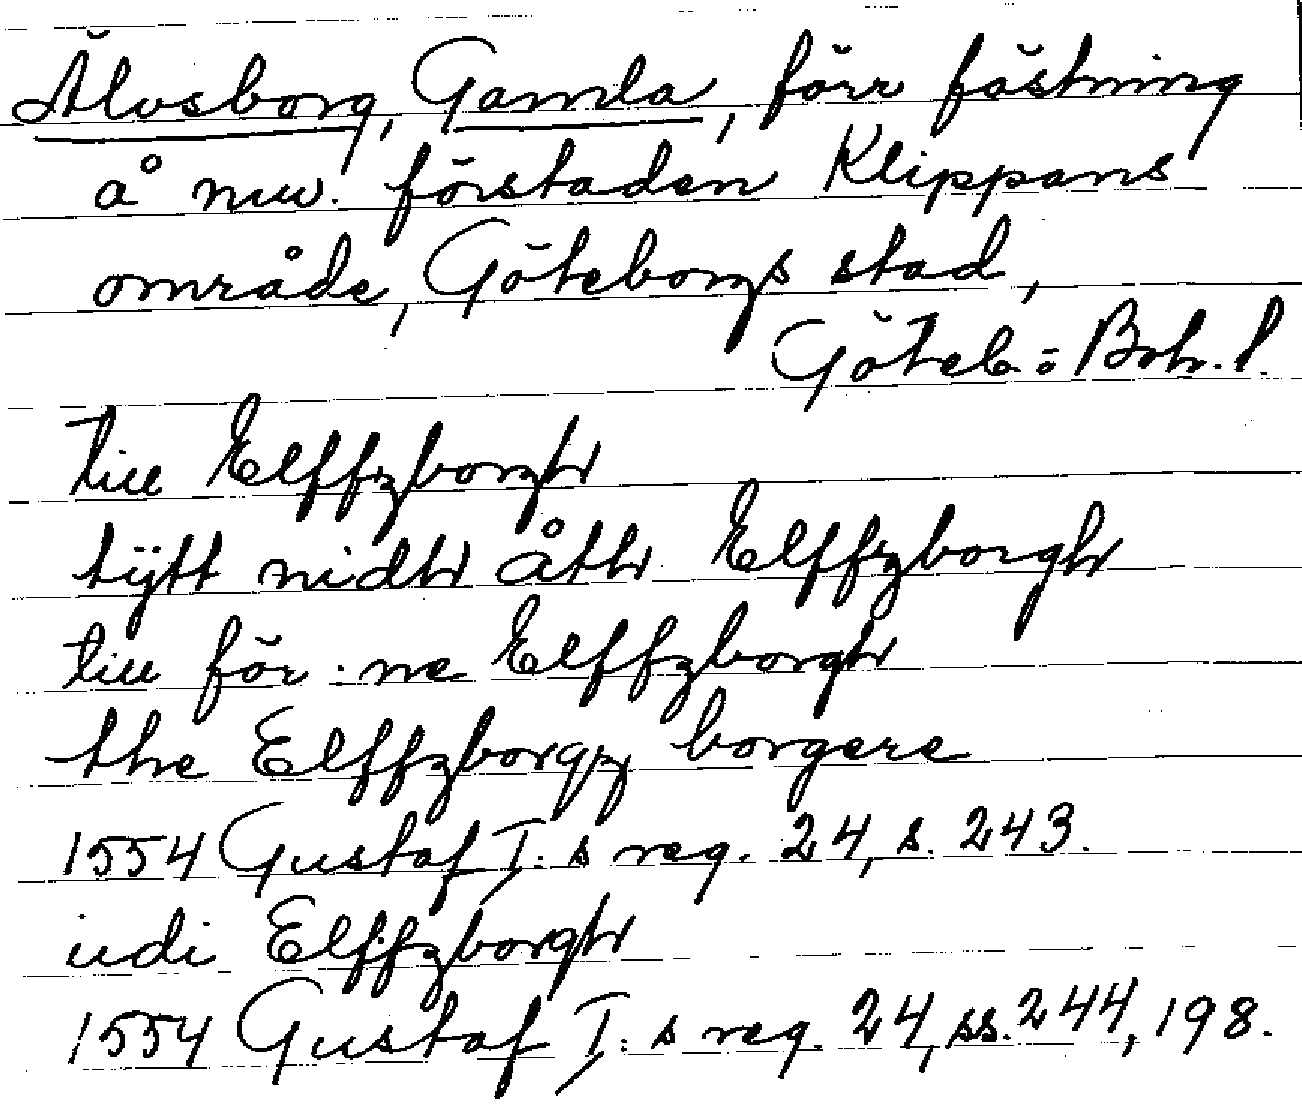 Älvsborg, Gamla, förr fästning
å nuv. förstaden Klippans
område, Göteborgs stad,
Göteb. o. Boh. l.
till Elffzborgh
tijtt nidh åth Elffzborgh
till för:ne Elffzborgh
the Elffzborgz borgere
1554 Gustaf I:s reg. 24, s. 243.
udi Elffzborgh
1554 Gustaf I:s reg. 24, ss. 244, 198.